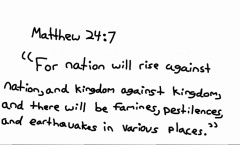 Matthew 24:7
"For nation will rise against
nation, and kingdom against kingdom,
and there will be famines, pestilences,
and earthquakes in various places."